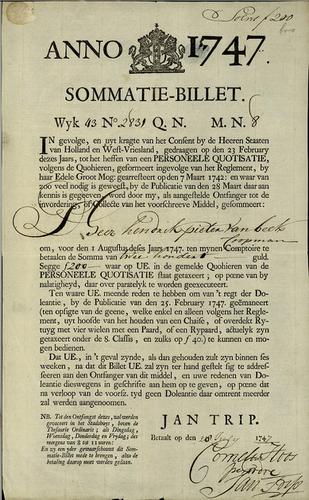 Soms ƒ 200
ANNO 1747.
SOMMATIE-BILLET.
Wyk 43 No. 2831 Q. N. M. N. 8
IN gevolge, en uyt kragte van het Consent by de Heeren Staaten
van Holland en West-Vriesland, gedraagen op den 23 February
dezes Jaars, tot het heffen van een PERSONEELE QUOTISATIE,
volgens de Quohieren, geformeert ingevolge van het Reglement, by
haar Edele Groot Mog: gearresteert op den 7 Maart 1742: en waar van
zoo veel nodig is geweest, by de Publicatie van den 28 Maart daar aan
kennis is gegeven, word door my, als aangestelde Ontfanger tot de
invordering, of Collecte van het voorschreeve Middel, gesommeert:
Hendrik Pieter van beek
Coopman
om, voor den 1 Augustus deses Jaars 1747. ten mynen Comptoire te
betaalen de Somma van twee hondert guld.
Segge ƒ 200 — waar op UE. in de gemelde Quohieren van de
PERSONEELE QUOTISATIE staat getaxeert; op pœne van by
nalatigheyd, daar over paratelyk te worden geexecuteert.
Ten waare UE. meende reden te hebben om van 't regt der Do-
leantie, by de Publicatie van den 23. February 1747. geëmaneert
(ten opsigte van de geene, welke enkel en alleen volgens het Regle-
ment, uyt hoofde van het houden van een Chaise, of overdekt Ry-
tuyg met vier wielen met een Paard, of een Rypaard, actuelyk zyn
getaxeert onder de 8. Classis, en zulks op ƒ 40.) te kunnen en mo-
gen bedienen.
Dat UE., in 't geval zynde, als dan gehouden zult zyn binnen ses
weeken, na dat dit Billet UE. zal zyn ter hand gestelt sig te addres-
seeren aan den Ontfanger van dit middel, en uwe redenen van Do-
leantie dieswegens in geschrifte aan hem op te geven, op pœne dat
na verloop van de voorsz. tyd geen Doleantie daar omtrent meerder
zal werden aangenomen.
JAN TRIP.
NB. Tot den Ontfangst dezes, zal werden
gevaceert in het Stadshuys, boven de
Thesaurie Ordinaris; als Dingsdag,
Woensdag, Donderdag en Vrydag; des
morgens van 8 tot 12 uuren:
En zy een yder gewaarschouwt dit Som-
matie-Billet mede te brengen, of dat de
betaling daarop moet werden gedaan.
Betaalt op den 20 July 1747
Cornelis Hos
per
Jan Trip